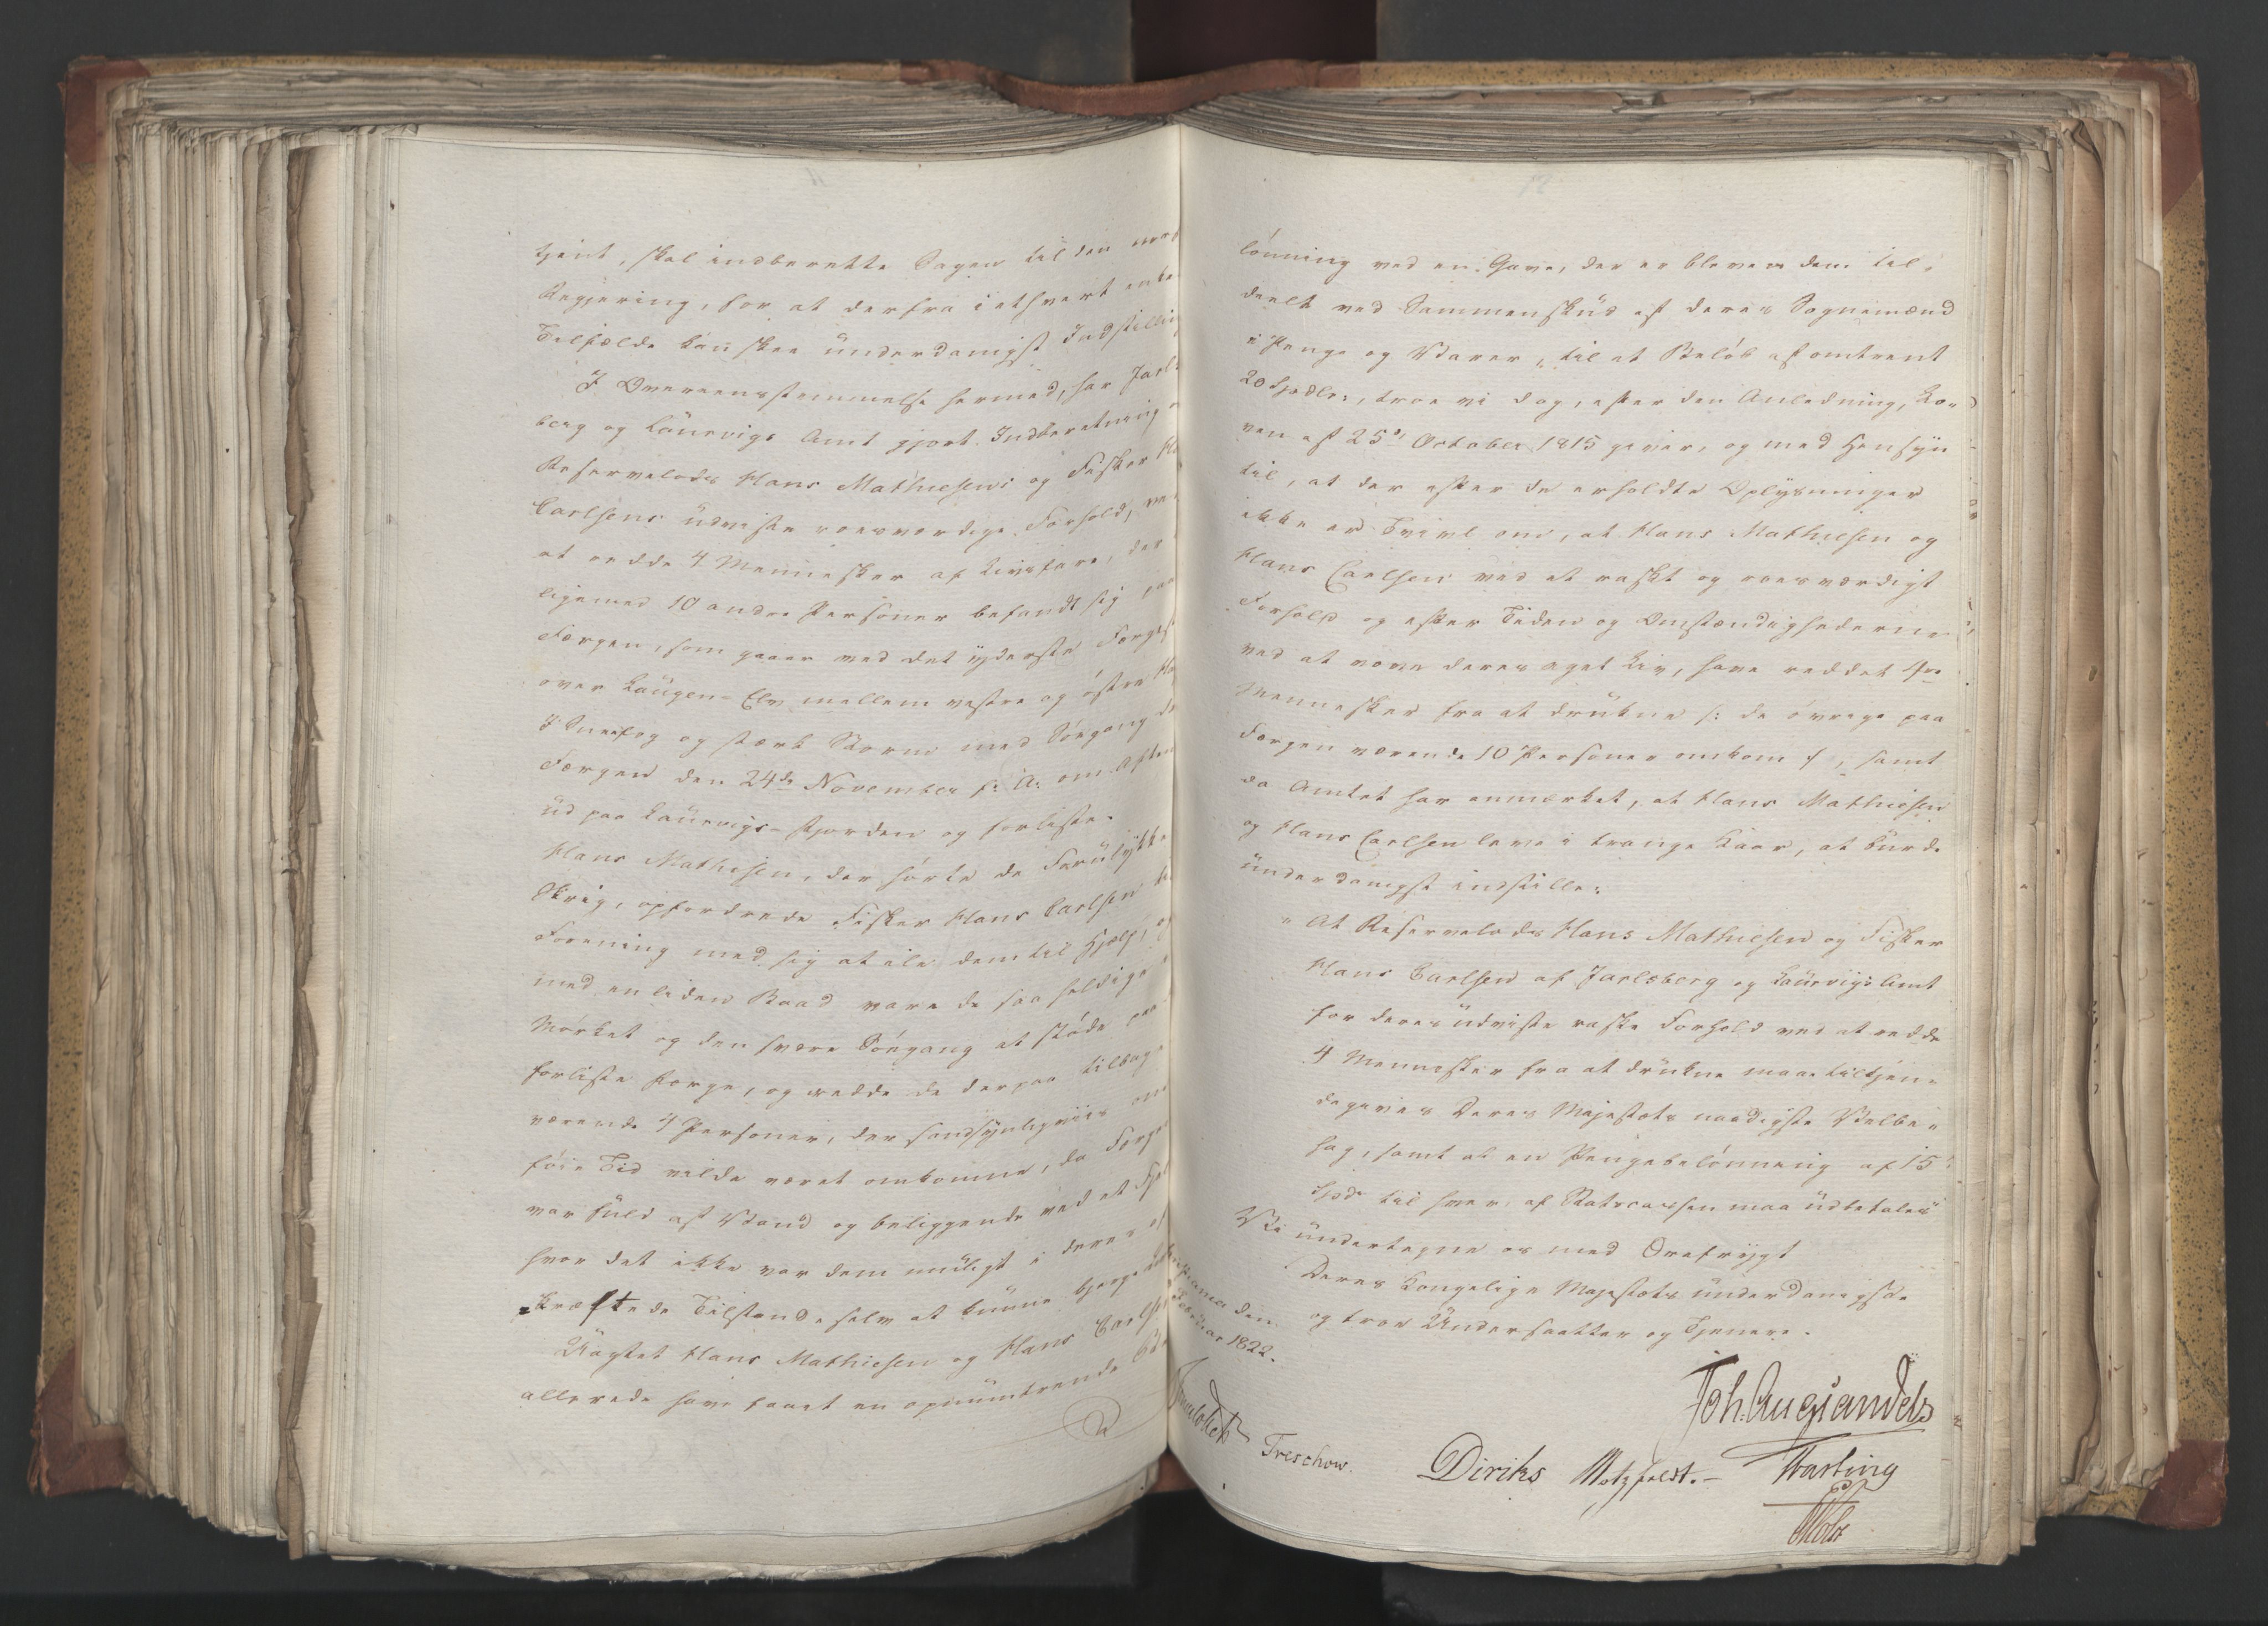 tjent, skal indberette Sagen til den norske
Regjering, for at derfra i ethvert enkelt
Tilfælde kan skee underdanigst Indstilling
I Overeensstemmelse hermed, har Jarls-
berg og Laurvigs Amt gjort Indberetning om
Reservelods Hans Mathiesens og Fisker Hans
Carlsens udviste roesværdige Forhold, ved
at redde 4 Mennesker af Livsfare, der
ligemed 10 andre Personer befandt sig paa
Færgen, som gaaer ved det yderste Færgested
over Laugen-Elv mellem vestre og østre
I Sneefog og stærk Storm med Søegang drev
Færgen den 24de November f: A: om Aftenen
ud paa Laurvigs-Fjorden og forliste.
Hans Mathisen, der hørte de Forulykkedes
Skrig, opfordrede Fisker Hans Carlsen til i
Forening med sig at ile dem til Hjelp, og
med en liden Baad vare de saa heldige i
Mørket og den svære Søegang at støde paa
forliste Færge, og redde de derpaa tilbage
værende 4 Personer, der sandsynligviis om
føie Tid vilde været omkomne, da Færgen
var fuld af Vand og beliggende ved et Fjeld
hvor det ikke var dem muligt i deres af-
kræftede Tilstande selv at kunne bjerge
Uagtet Hans Mathiesen og Hans Carlsen
allerede have faaet en opmuntrende Be-
lønning ved en Gave, der er bleven dem til-
deelt ved Sammenskud af deres Sognemænd
i Penge og Varer, til et Beløb af omtrent
20 Spdlr:, troe vi dog, efter den Anledning, Lo-
ven af 25de October 1815 giver, og med Hensyn
til, at der efter de erholdte Oplysninger
ikke er Tvivl om, at Hans Mathiesen og
Hans Carlsen ved et raskt og roesværdigt
Forhold og efter Tiden og Omstændighederne
ved at vove deres eget Liv, have reddet 4re
Mennesker fra at drukne /: de øvrige paa
Færgen værende 10 Personer omkom :/, samt
da Amtet har anmærket, at Hans Mathiesen
og Hans Carlsen leve i trange Kaar, at burde
underdanigst indstille:
"At Reservelods Hans Mathiesen og Fisker
Hans Carlsen af Jarlsberg og Laurvigs Amt
for deres udviste raske Forhold ved at redde
4 Mennesker fra at drukne maae tilkjen-
degives Deres Majestæts naadigste Velbe-
hag, samt at en Pengebelønning af 15
Spd. til hver af Statscassen maa udbetales"
Vi undertegne os med Ærefrygt
Deres Kongelige Majestæts underdanigste
og troe Undersaatter og Tjenere.
Christiania den
Februar 1822.
Joh. Aug Sandels
Sommerhielm Treschow. Diriks Motzfeldt. - Fasting
Holst